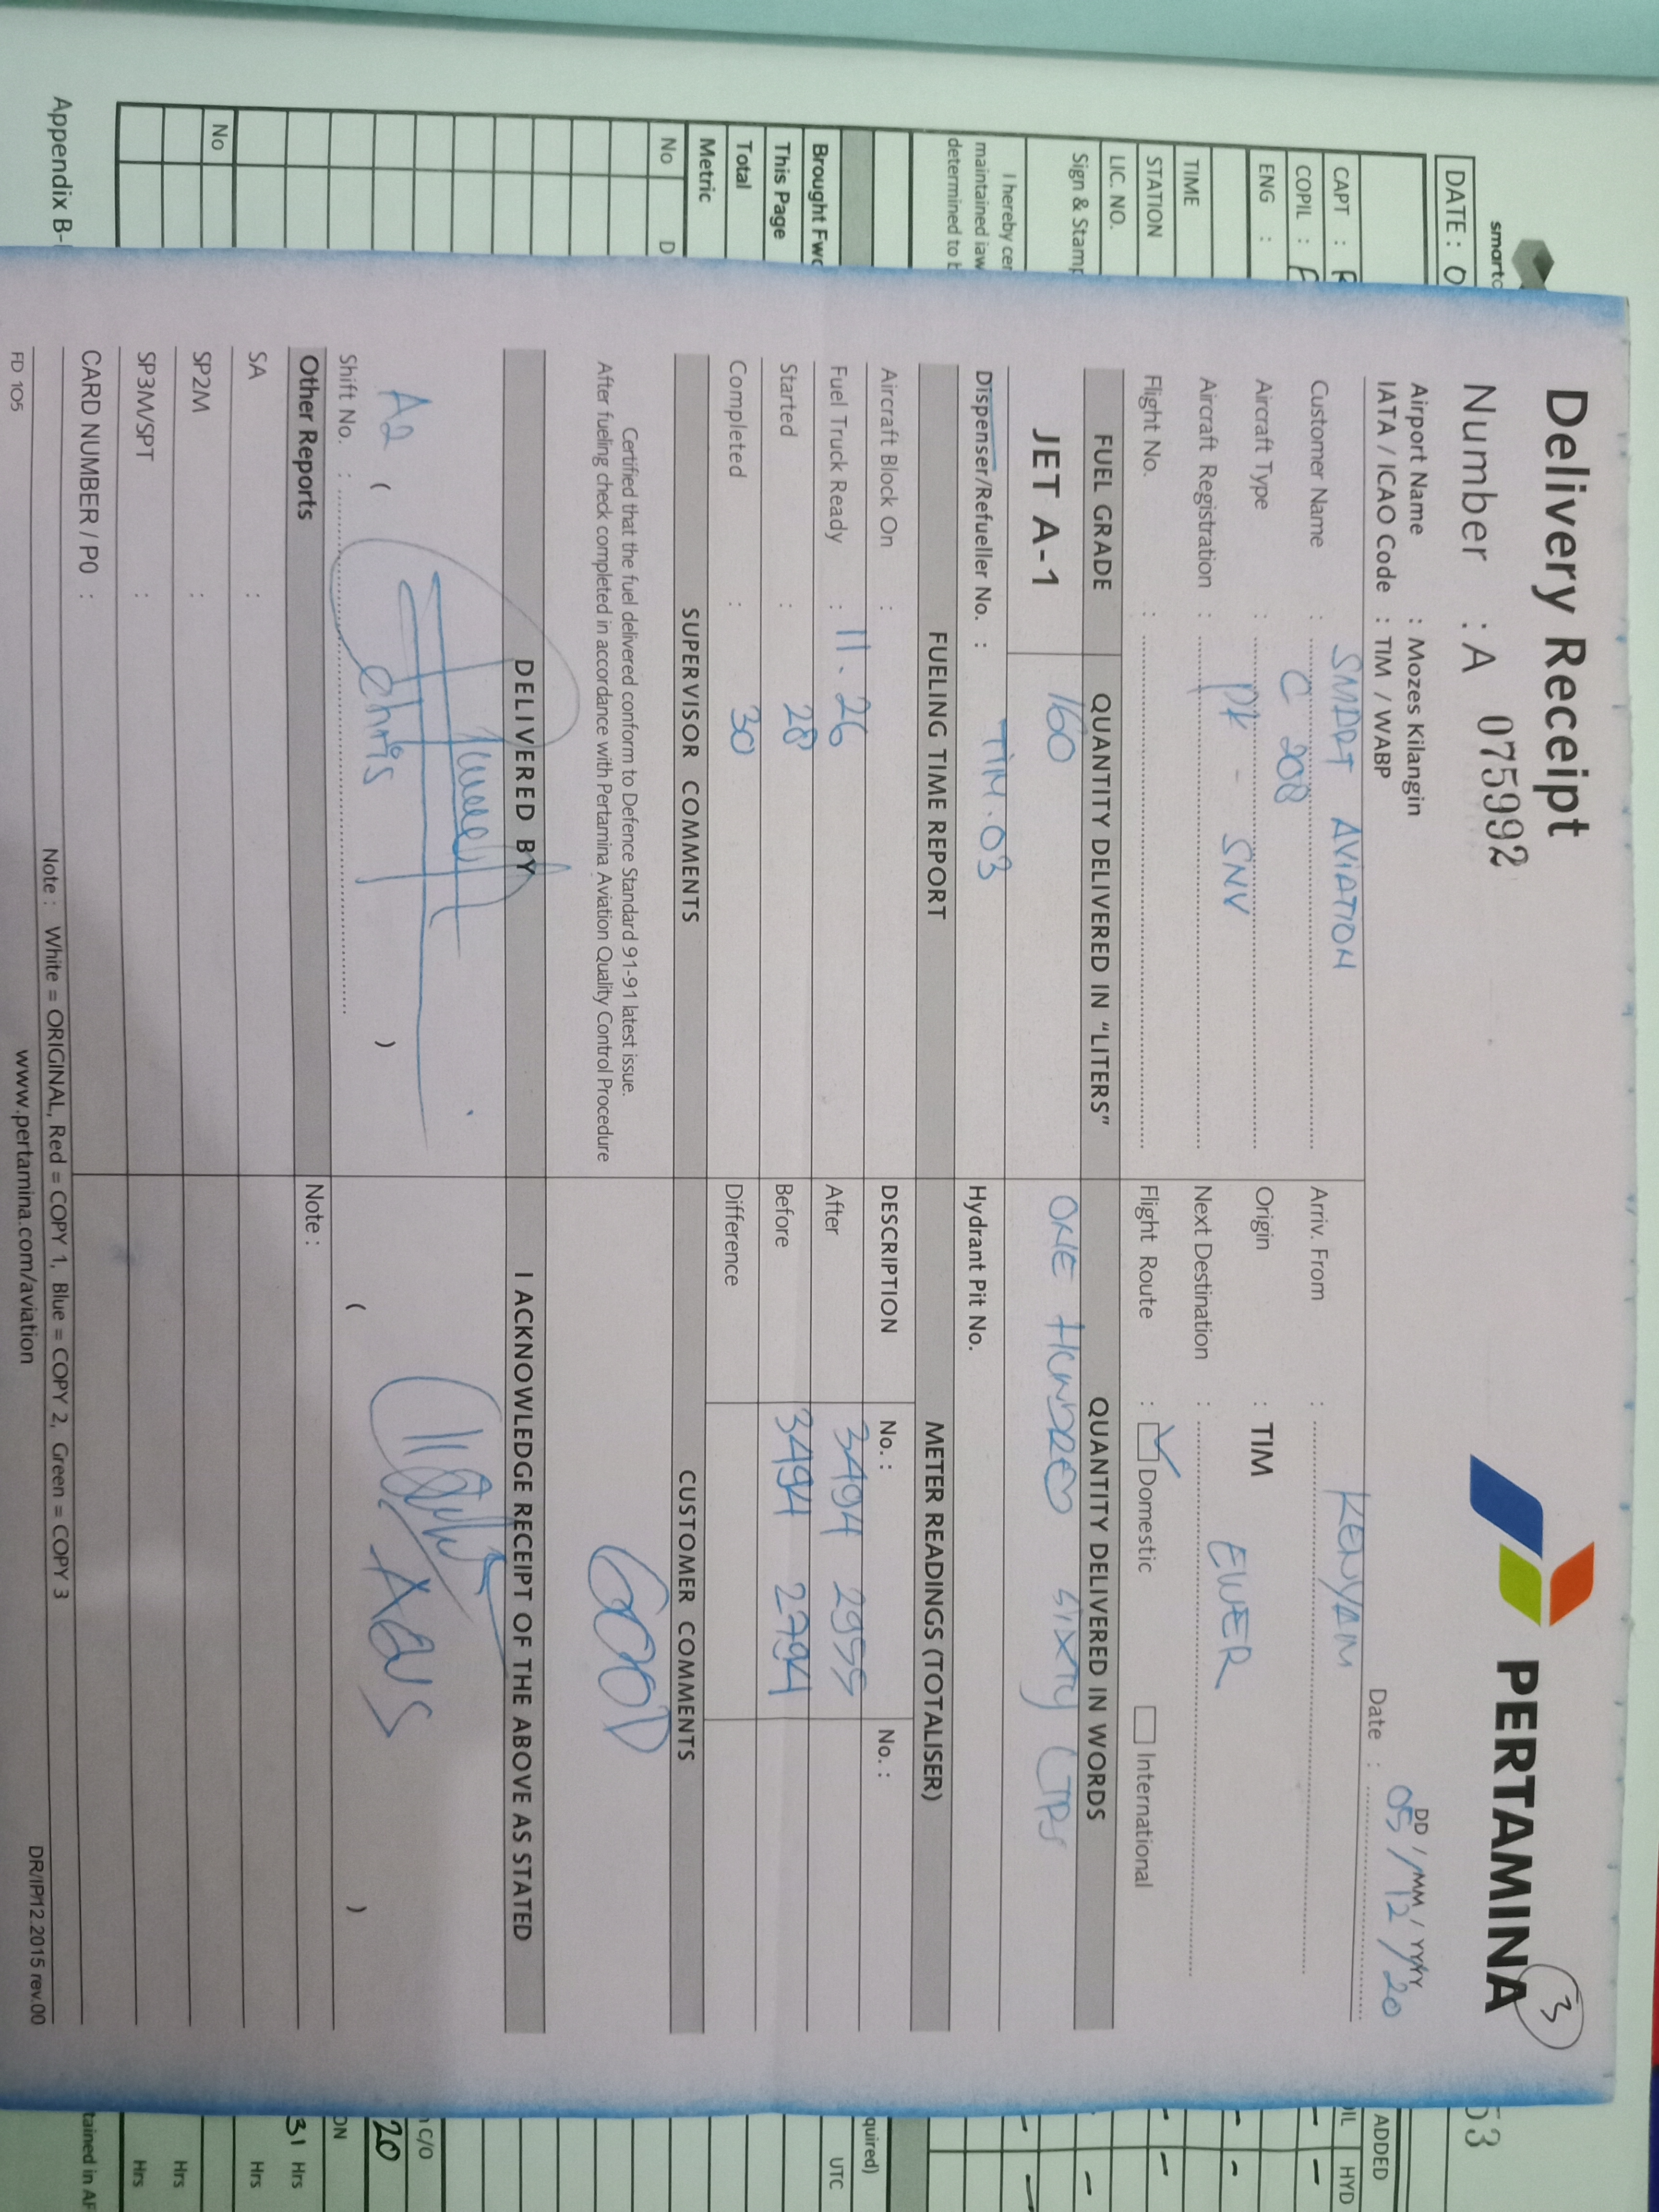 smartc
DATE : 0
CAPT :
COPIL :
ENG :
TIME
STATION
LIC. NO.
Sign & Stamp
I hereby cer
maintained iaw
determined to b
Brought Fwd
This Page
Total
Metric
No D
No
Appendix B-
Delivery Receipt
PERTAMINA
3
Number : A 075992
Airport Name : Mozes Kilangin
DD / MM / YYYY
IATA / ICAO Code : TIM / WABP
Date : 05 / 12 / 20
Customer Name : SMART AVIATION
Arriv. From : KENYAM
Aircraft Type : C 208
Origin : TIM
Aircraft Registration : PK - SNV
Next Destination : EWER
Flight No. :
Flight Route : Domestic International
FUEL GRADE QUANTITY DELIVERED IN "LITERS" QUANTITY DELIVERED IN WORDS
JET A-1 160 ONE HUNDRED SIXTY LTRS
Dispenser/Refueller No. : TIM.03 Hydrant Pit No.
FUELING TIME REPORT METER READINGS (TOTALISER)
Aircraft Block On : DESCRIPTION No. : No. :
Fuel Truck Ready : 11.26 After 3494
Started : 28 Before 3494 2794
Completed : 30 Difference
SUPERVISOR COMMENTS CUSTOMER COMMENTS
Certified that the fuel delivered conform to Defence Standard 91-91 latest issue.
After fueling check completed in accordance with Pertamina Aviation Quality Control Procedure
GOOD
DELIVERED BY I ACKNOWLEDGE RECEIPT OF THE ABOVE AS STATED
A2 ( chris ) ( )
Shift No. :
Other Reports Note :
SA :
SP2M :
SP3M/SPT :
CARD NUMBER / PO :
Note : White = ORIGINAL, Red = COPY 1, Blue = COPY 2, Green = COPY 3
FD 105 www.pertamina.com/aviation DR/IP/12.2015 rev.00
53
ADDED
OIL HYD
quired)
UTC
C/O
20
ON
31 Hrs
Hrs
Hrs
Hrs
tained in AF